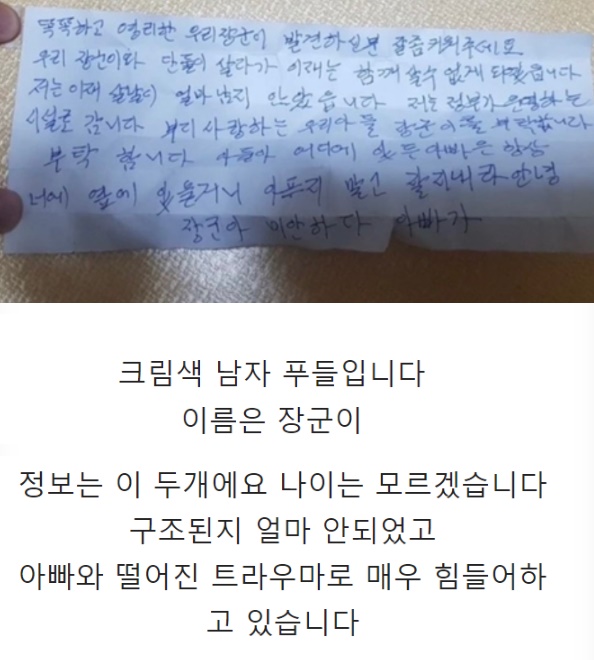 똑똑하고 영리한 우리장군이 발견하실분 잘좀키워주세요
우리 장군이와 단둘이 살다가 이제는 함께 살수 없게 되었습니다
저는 이제 살날이 얼마남지 안았습니다 저는 정부가 운영하는
시설로 갑니다 부디 사랑하는 우리아들 장군이를 부탁합니다
부탁 합니다 아들아 어디에 있든 아빠은 항상
너에 옆에 있을거니 아푸지 말고 잘지내라 안녕
장군아 미안하다 아빠가
크림색 남자 푸들입니다
이름은 장군이
정보는 이 두개에요 나이는 모르겠습니다
구조된지 얼마 안되었고
아빠와 떨어진 트라우마로 매우 힘들어하
고 있습니다